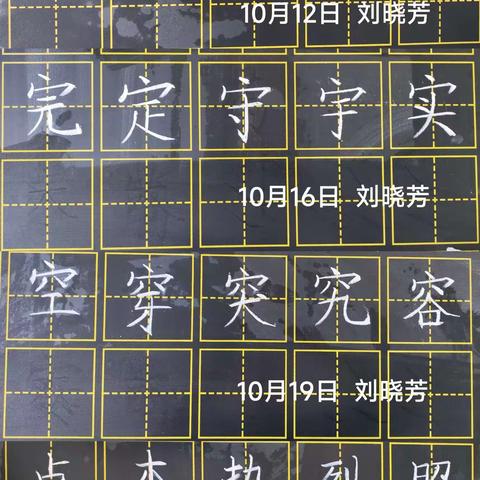 10月12日 刘晓芳
完定守宇实
10月16日 刘晓芳
空穿突究容
10月19日 刘晓芳
点杰热烈照